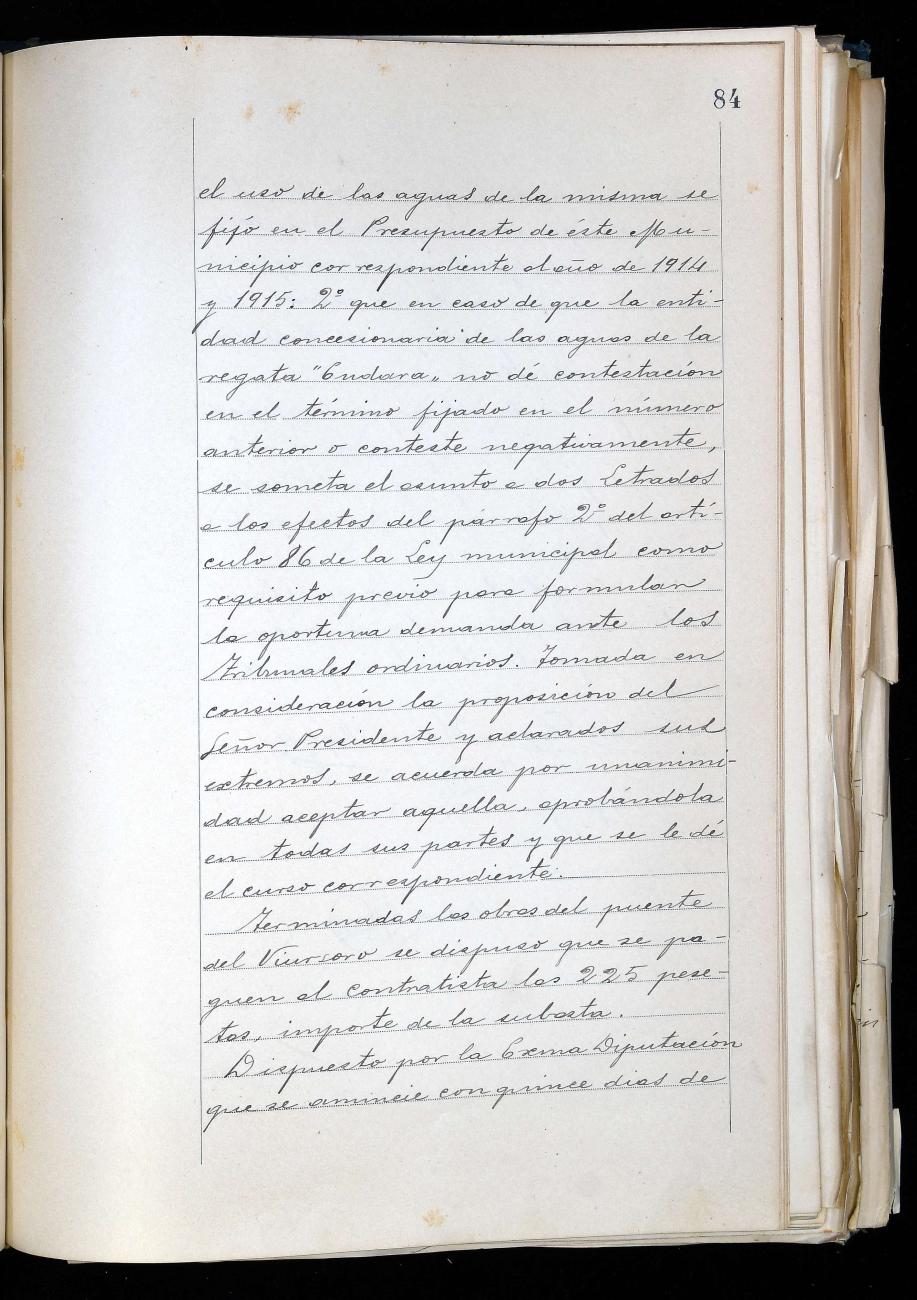 84
el uso de las aguas de la misma se
fijó en el Presupuesto de éste Mu-
nicipio correspondiente al año de 1914
y 1915: 2º que en caso de que la enti-
dad concesionaria de las aguas de la
regata "Endara„ no dé contestación
en el término fijado en el número
anterior o conteste negativamente,
se someta el asunto a dos Letrados
a los efectos del párrafo 2º del artí-
culo 86 de la Ley municipal como
requisito previo para formular
la oportuna demanda ante los
Tribunales ordinarios. Tomada en
consideración la proposición del
Señor Presidente y aclarados sus
extremos, se acuerda por unanimi-
dad aceptar aquella, aprobándola
en todas sus partes y que se le dé
el curso correspondiente.
Terminadas las obras del puente
del se dispuso que se pa-
guen al contratista las 225 pese-
tas, importe de la subasta.
Dispuesto por la Exma Diputación
que se anuncie con quince dias de